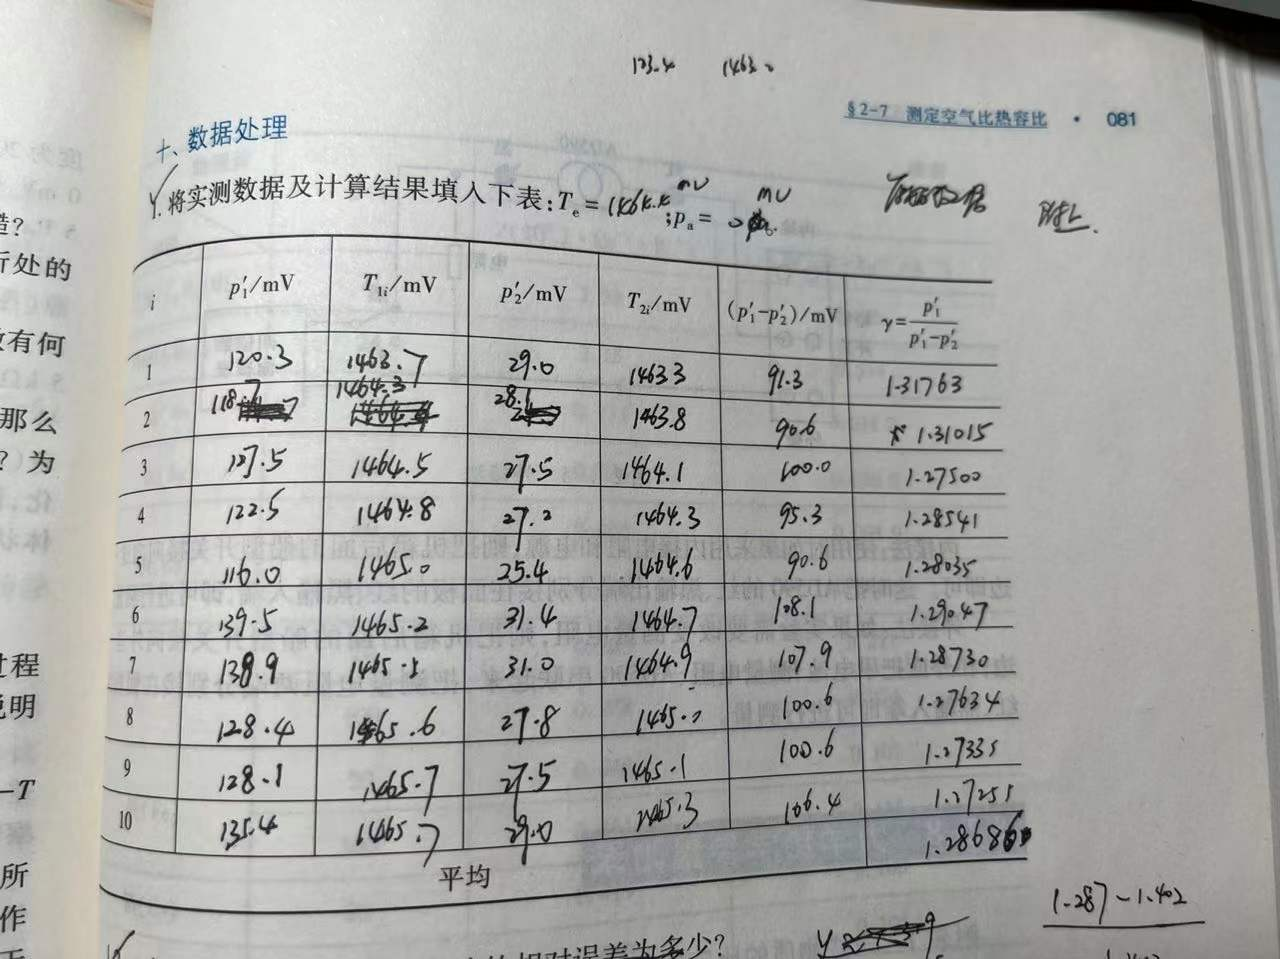 123.4 1463.0
§2-7 测定空气比热容比 · 081
十、数据处理
1.将实测数据及计算结果填入下表:Te=1464.4 mV ;pa= 0 mV
i p′1/mV T1i/mV p′2/mV T2i/mV (p′1-p′2)/mV γ=p′1/(p′1-p′2)
1 120.3 1463.7 29.0 1463.3 91.3 1.31763
2 118.7 1464.3 28.1 1463.8 90.6 1.31015
3 127.5 1464.5 27.5 1464.1 100.0 1.27500
4 122.5 1464.8 27.2 1464.3 95.3 1.28541
5 116.0 1465.0 25.4 1464.6 90.6 1.28035
6 139.5 1465.2 31.4 1464.7 108.1 1.29047
7 138.9 1465.5 31.0 1464.9 107.9 1.28730
8 128.4 1465.6 27.8 1465.0 100.6 1.27634
9 128.1 1465.7 27.5 1465.1 100.6 1.27335
10 135.4 1465.7 29.0 1465.3 106.4 1.27255
平均 1.28686
1.287-1.402
相对误差为多少?
错?
所处的
数有何
那么
?为
过程
说明
-T
所
作